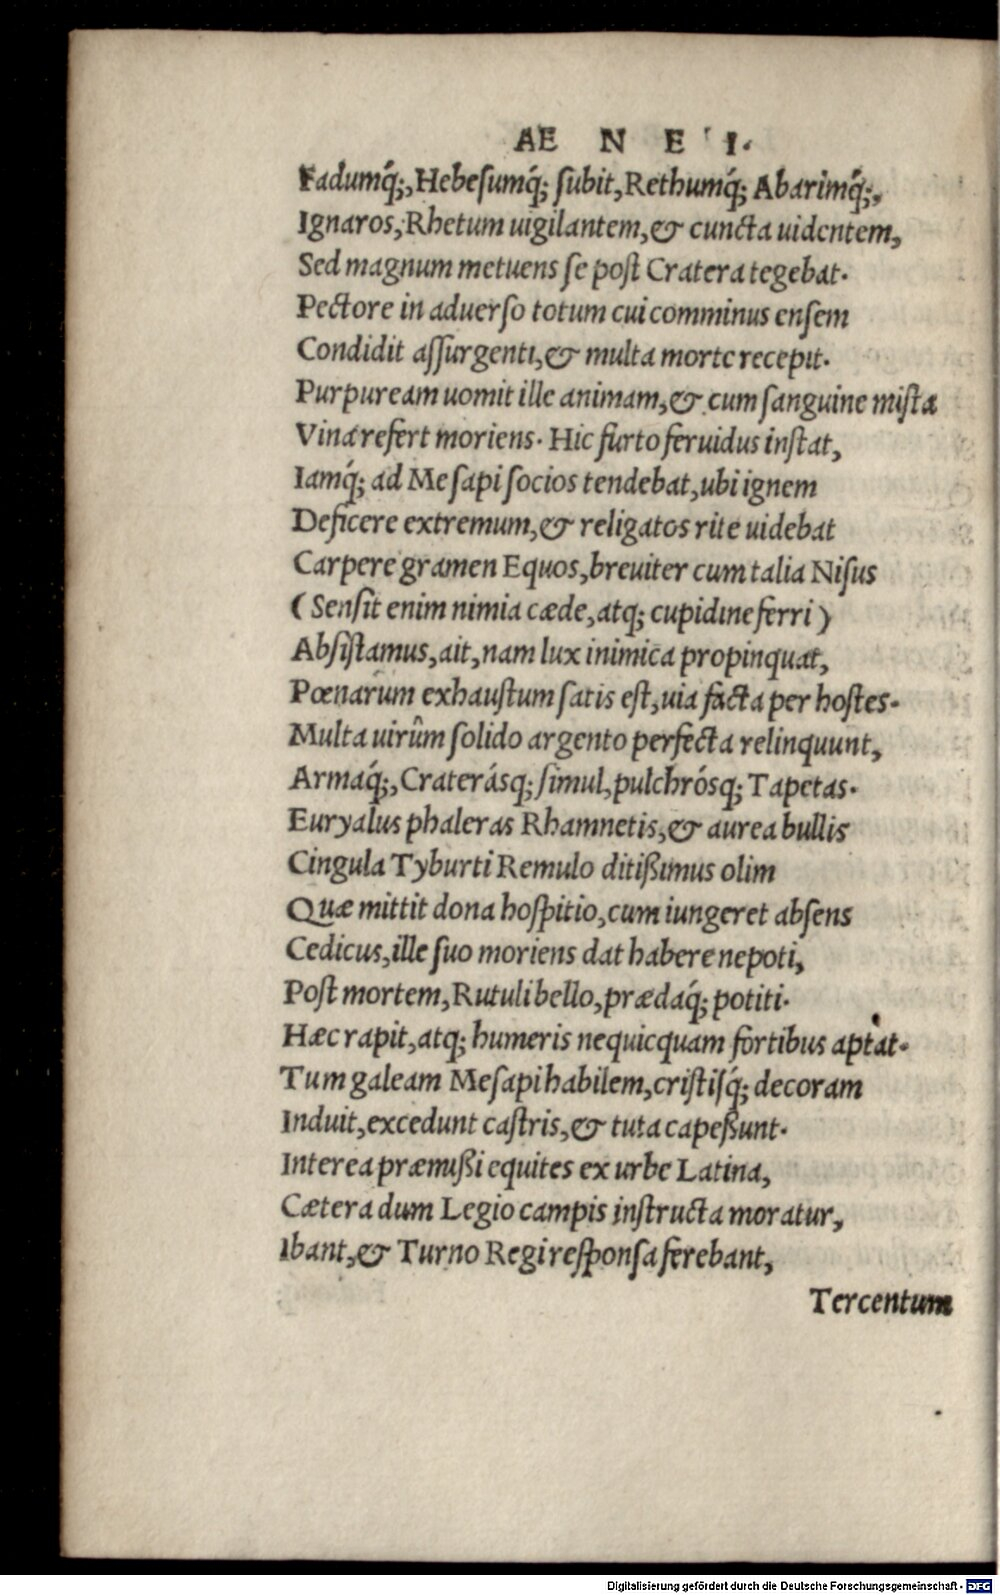 AE N E I.
Fadumq́;, Hebesumq́; subit, Rethumq́; Abarimq́;,
Ignaros, Rhetum uigilantem, & cuncta uidentem,
Sed magnum metuens se post Cratera tegebat.
Pectore in aduerso totum cui comminus ensem
Condidit assurgenti, & multa morte recepit.
Purpuream uomit ille animam, & cum sanguine mista
Vina refert moriens. Hic furto feruidus instat,
Iamq́; ad Mesapi socios tendebat, ubi ignem
Deficere extremum, & religatos rite uidebat
Carpere gramen Equos, breuiter cum talia Nisus
(Sensit enim nimia cæde, atq; cupidine ferri)
Absistamus, ait, nam lux inimica propinquat,
Pœnarum exhaustum satis est, uia facta per hostes.
Multa uirûm solido argento perfecta relinquunt,
Armaq́;, Craterásq; simul, pulchrósq; Tapetas.
Euryalus phaleras Rhamnetis, & aurea bullis
Cingula Tyburti Remulo ditißimus olim
Quæ mittit dona hospitio, cum iungeret absens
Cedicus, ille suo moriens dat habere nepoti,
Post mortem, Rutuli bello, prædaq́; potiti.
Hæc rapit, atq; humeris nequicquam fortibus aptat.
Tum galeam Mesapi habilem, cristisq́; decoram
Induit, excedunt castris, & tuta capeßunt.
Interea præmißi equites ex urbe Latina,
Cætera dum Legio campis instructa moratur,
Ibant, & Turno Regi responsa ferebant,
Tercentum
Digitalisierung gefördert durch die Deutsche Forschungsgemeinschaft - DFG